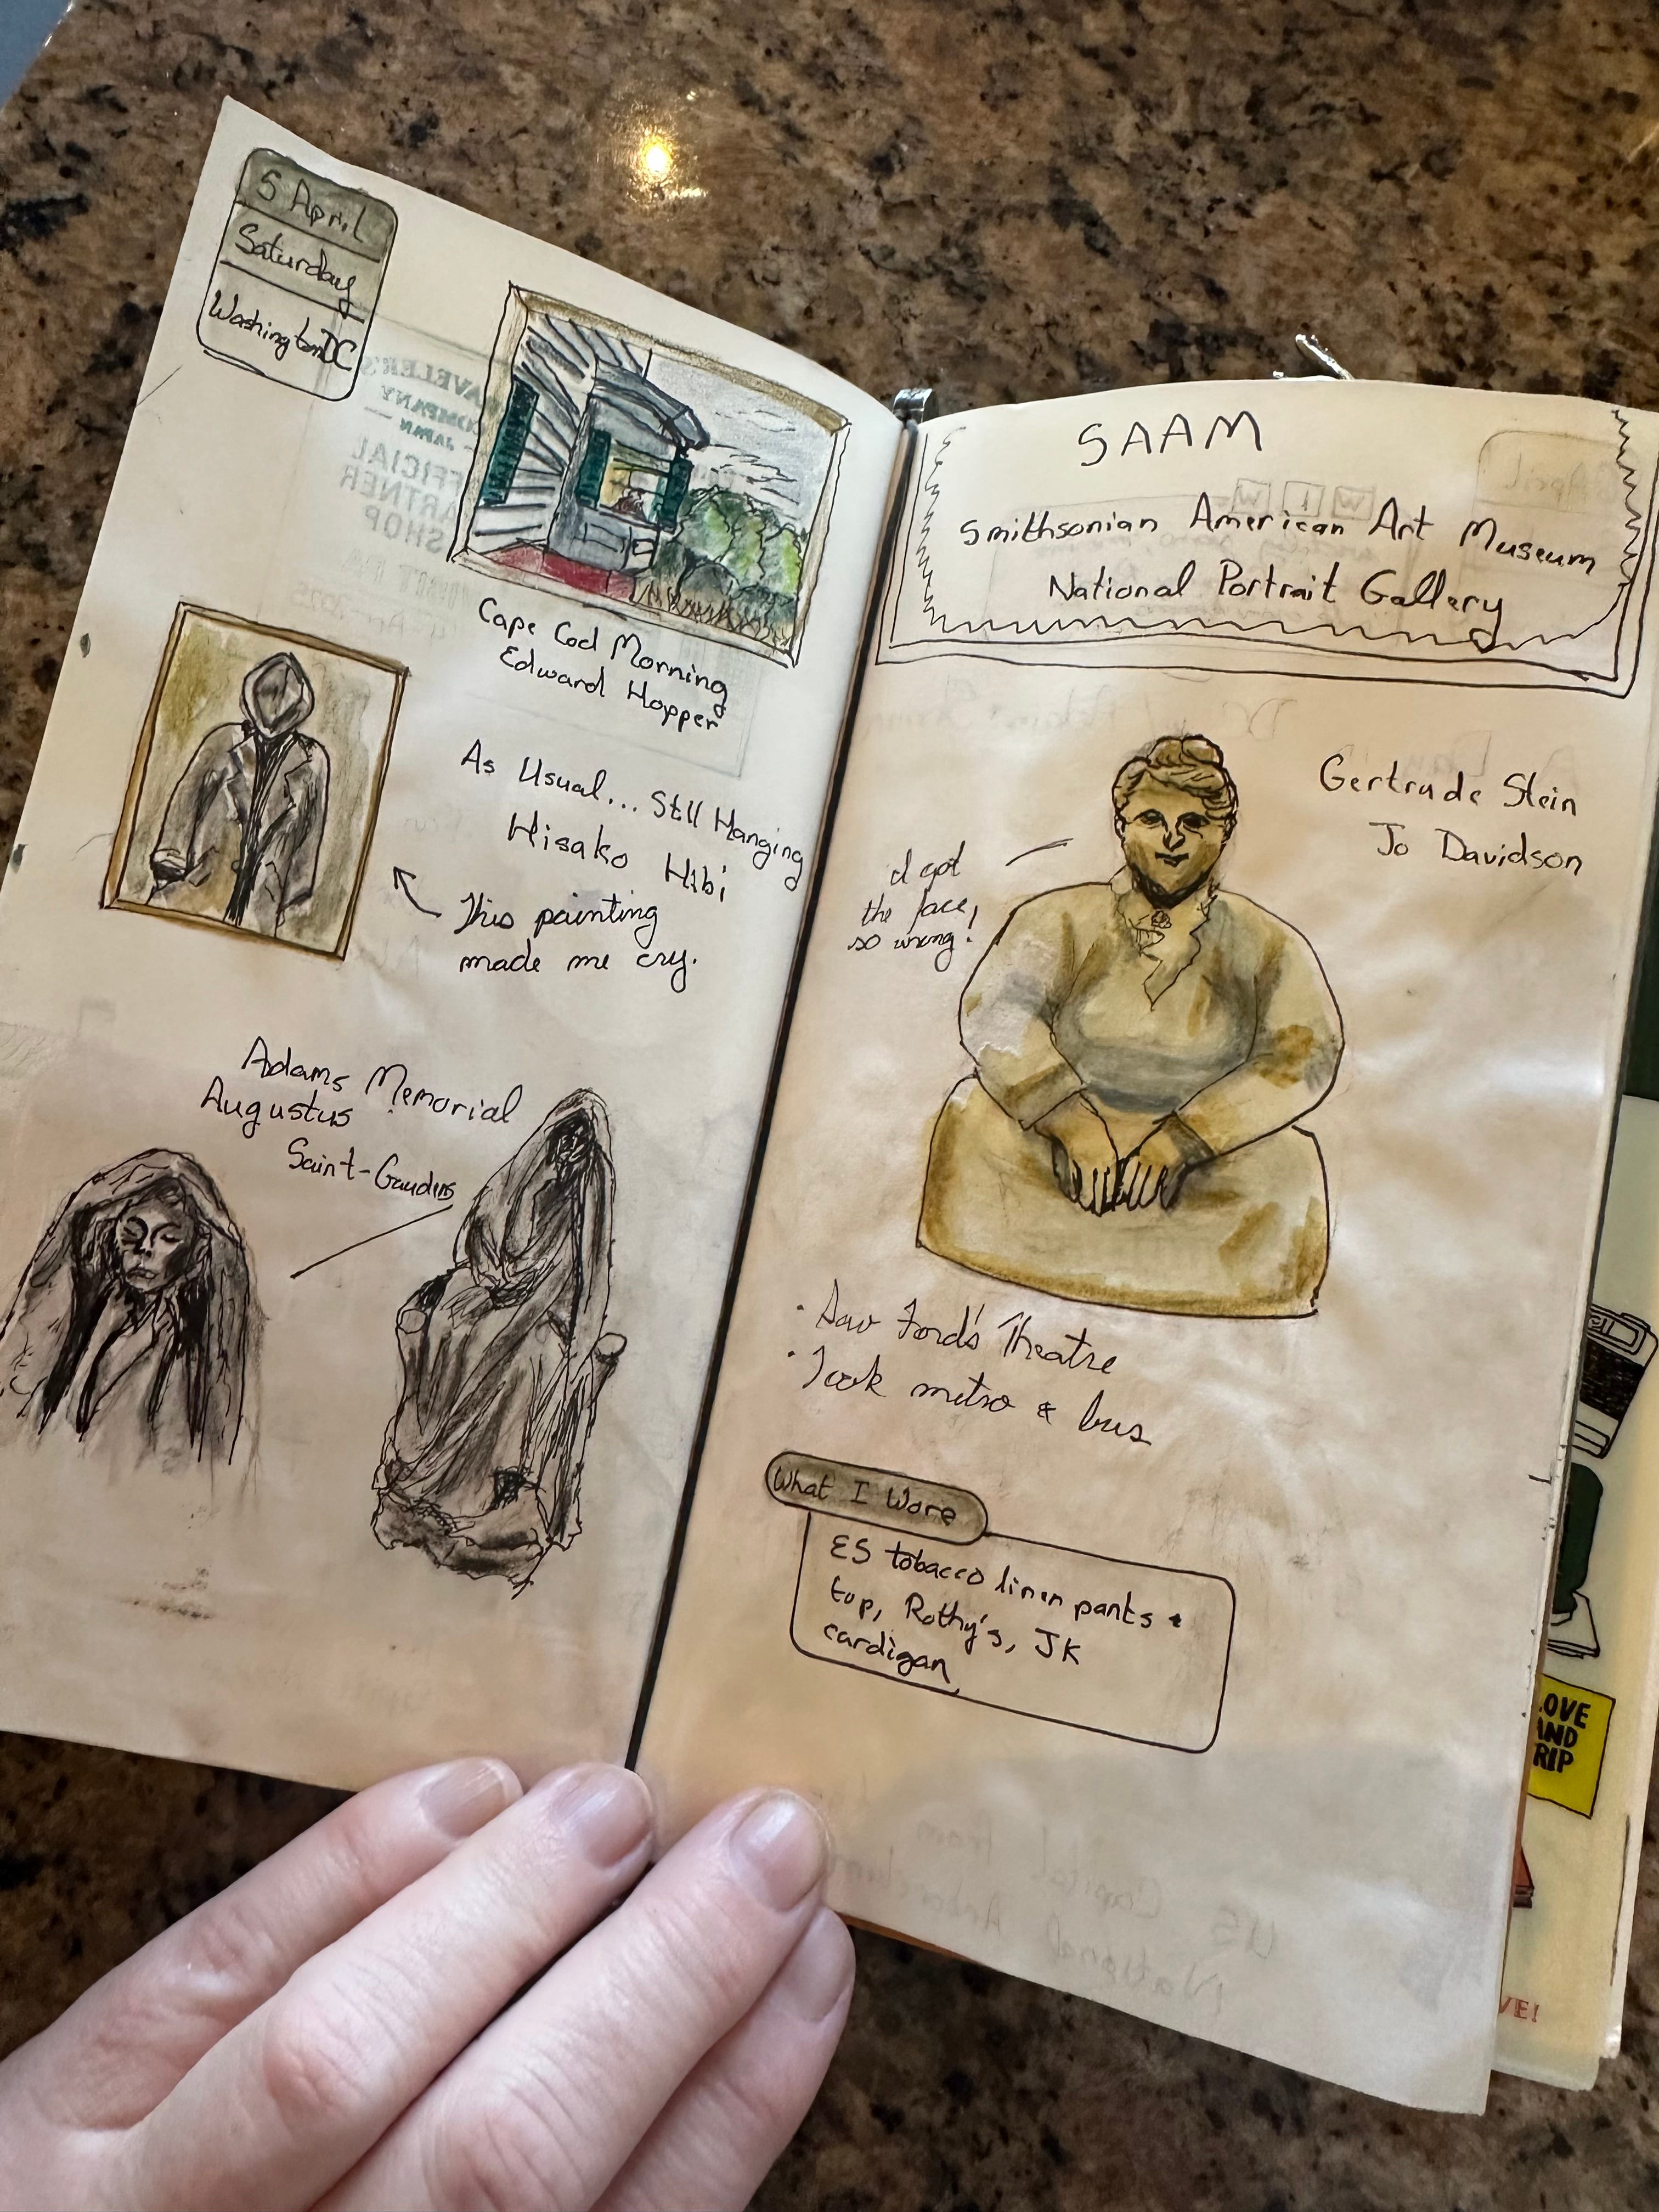 5 April
Saturday
Washington DC
Cape Cod Morning
Edward Hopper
As Usual... Still Hanging
Hisako Hibi
This painting
made me cry.
Adams Memorial
Augustus
Saint-Gaudens
SAAM
Smithsonian American Art Museum
National Portrait Gallery
Gertrude Stein
Jo Davidson
I got
the face
so wrong!
· Saw Ford's Theatre
· Took metro & bus
What I Wore
ES tobacco linen pants +
top, Rothy's, JK
cardigan
OVE
AND
RIP
VE!